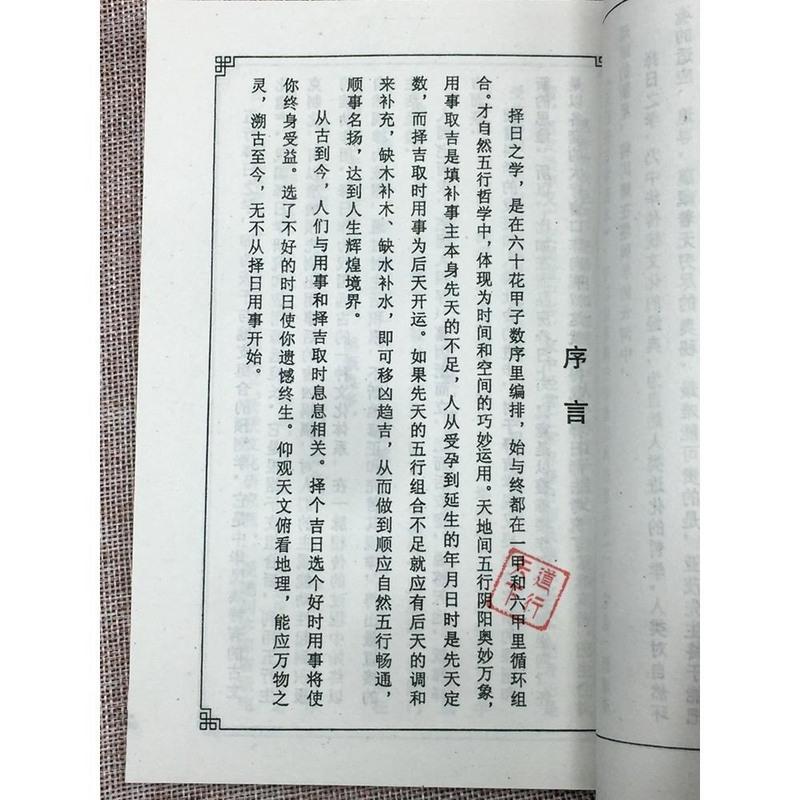 序言
择日之学，是在六十花甲子数序里编排，始与终都在一甲和六甲里循环组
合。才自然五行哲学中，体现为时间和空间的巧妙运用。天地间五行阴阳奥妙万象，
用事取吉是填补事主本身先天的不足，人从受孕到延生的年月日时是先天定
数，而择吉取时用事为后天开运。如果先天的五行组合不足就应有后天的调和
来补充，缺木补木、缺水补水，即可移凶趋吉，从而做到顺应自然五行畅通，
顺事名扬，达到人生辉煌境界。
从古到今，人们与用事和择吉取时息息相关。择个吉日选个好时用事将使
你终身受益。选了不好的时日使你遗憾终生。仰观天文俯看地理，能应万物之
灵，溯古至今，无不从择日用事开始。
道行
天下